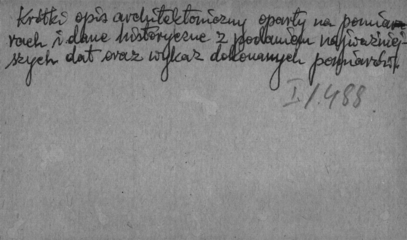 Krótki opis architektoniczny oparty na pomia-
rach i dane historyczne z podaniem najważniej-
szych dat oraz wykaz dokonanych pomiarów.
I/1.488